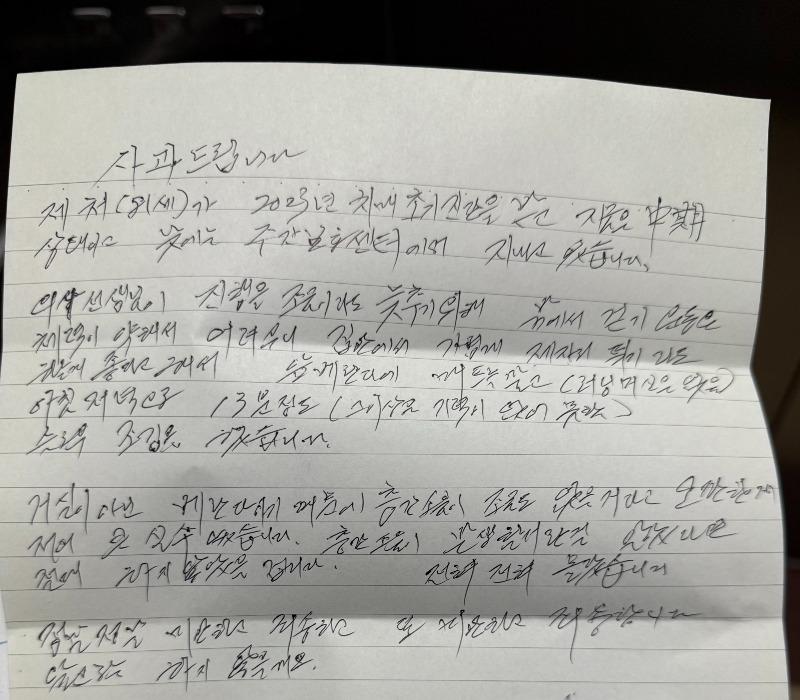 사과드립니다
제 처(81세)가 2023년 치매초기진단을 받고 지금은 中期
상태이고 낮에는 주간보호센터에서 지내고 있습니다.
의사선생님이 진행을 조금이라도 늦추기위해 밖에서 걷기 운동은
체력이 약해서 어려우니 집안에서 가볍게 제자리 뛰기 라도
하는게 좋다고 해서 베란다에 매트를 깔고 (러닝머신은 없음)
아침 저녁으로 13분정도 (그이상은 기력이 없어 못함)
슬로우 조깅을 했습니다.
거실이 아닌 베란다이기 때문에 층간소음이 조금도 없을 거라고 오판한게
저의 큰 실수 였습니다. 층간소음이 발생할거란걸 알았다면
절대 하지 않았을 겁니다. 전혀 전혀 몰랐습니다
정말 정말 미안하고 죄송하고 또 미안하고 죄송합니다
앞으로는 하지 않을게요.